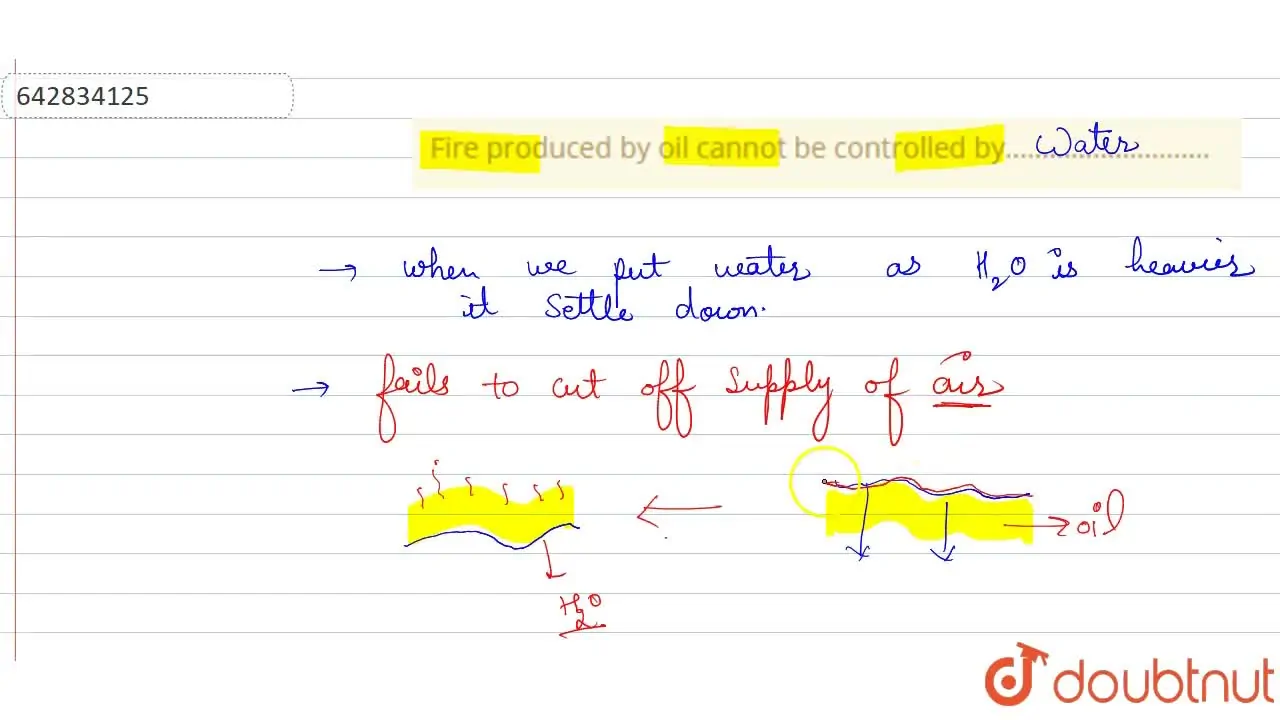 642834125
Fire produced by oil cannot be controlled by............................ Water
→ when we put water as H₂O is heavier
it settle down.
→ fails to cut off supply of air
→ oil
H₂O
doubtnut